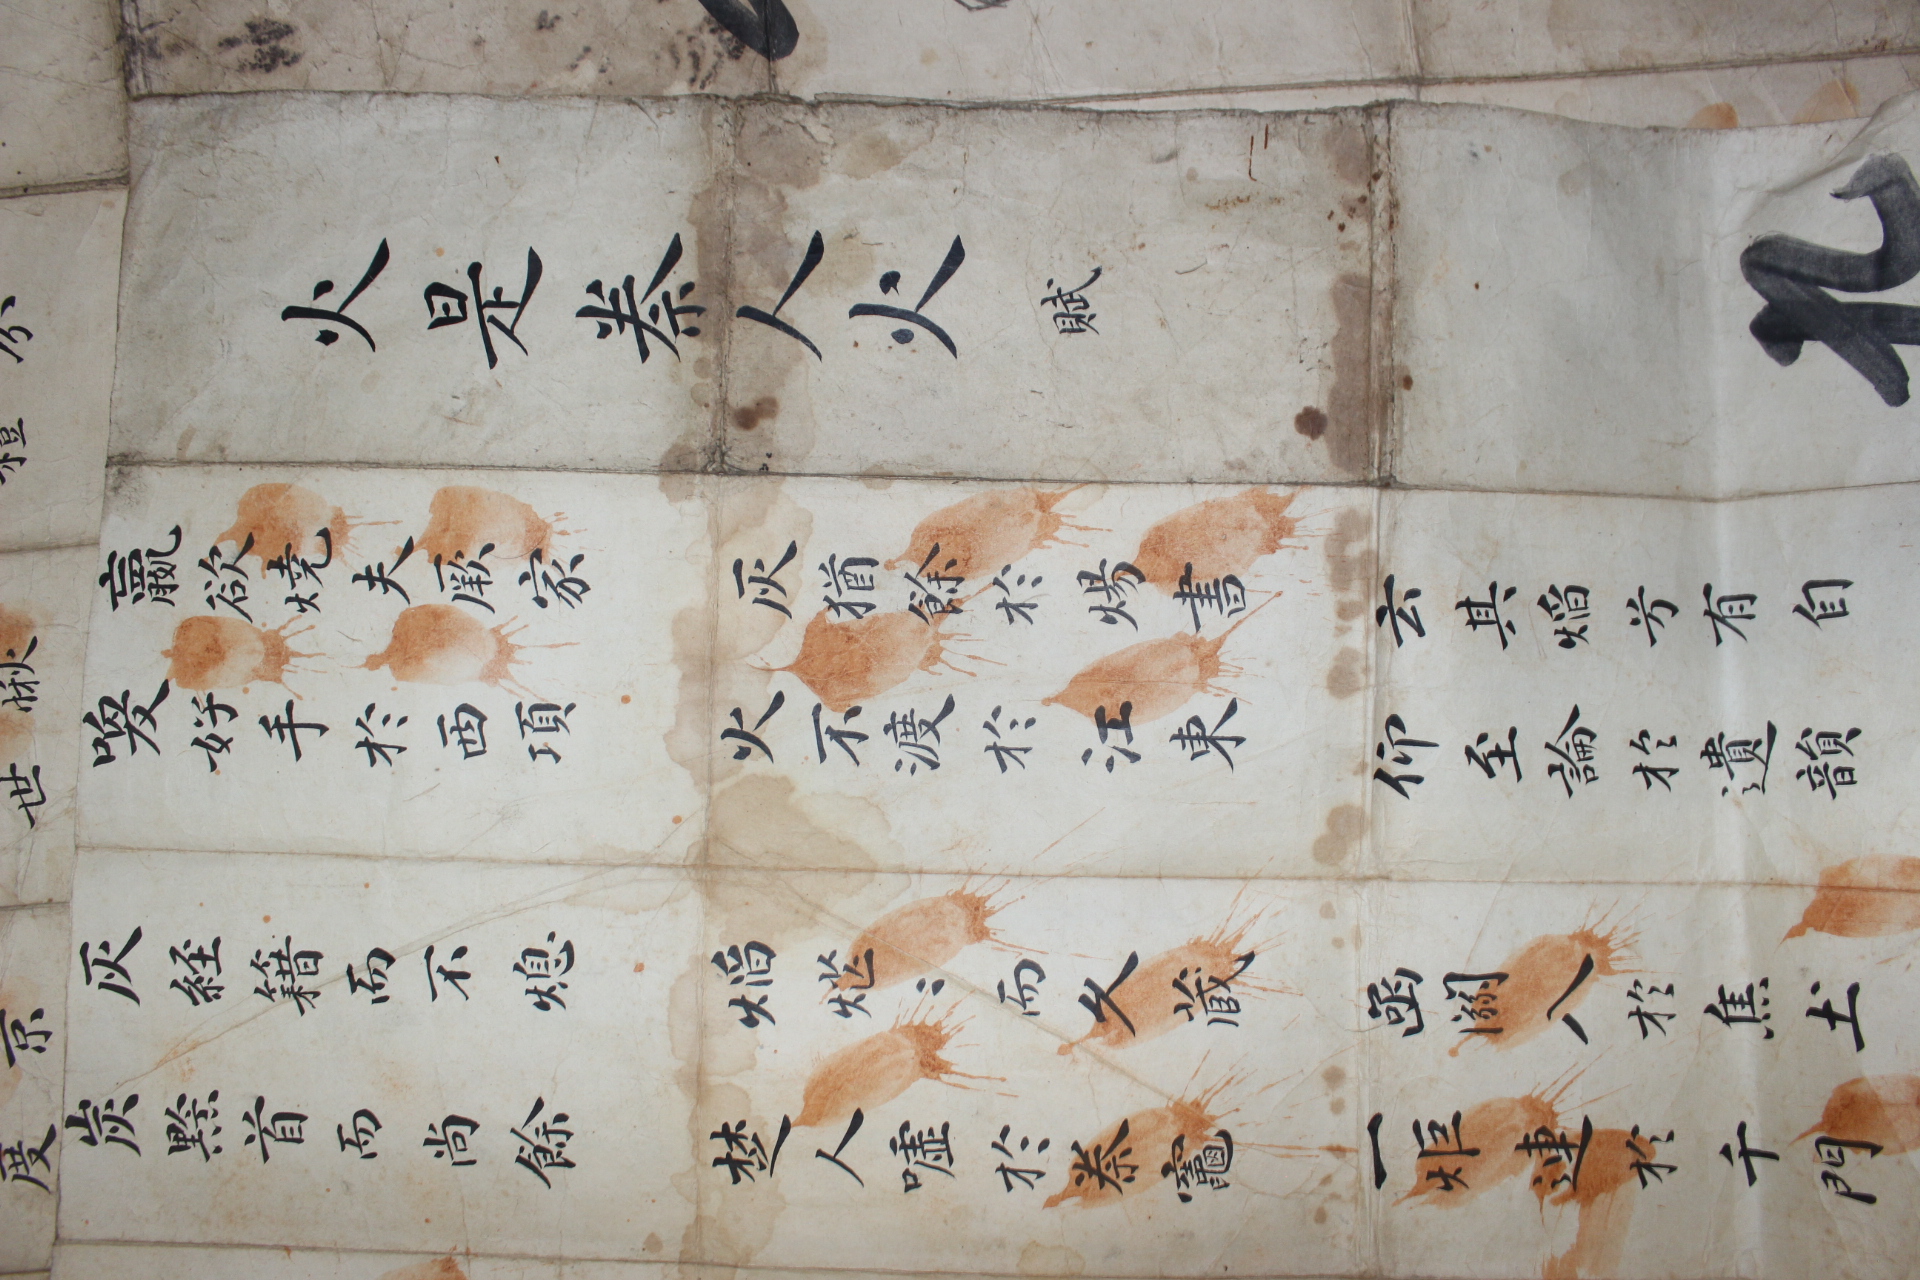 火是秦人火 賦
嬴欲燒夫厥家 灰猶餘於煬書 云其焰兮有自
世 喚好手於西項 火不渡於江東 仰至論於遺韻
京 灰経籍而不熄 焰〻而久蔵 函關入於焦土
度 炭黔首而尚餘 楚人嘘於秦竈 一炬連於千門